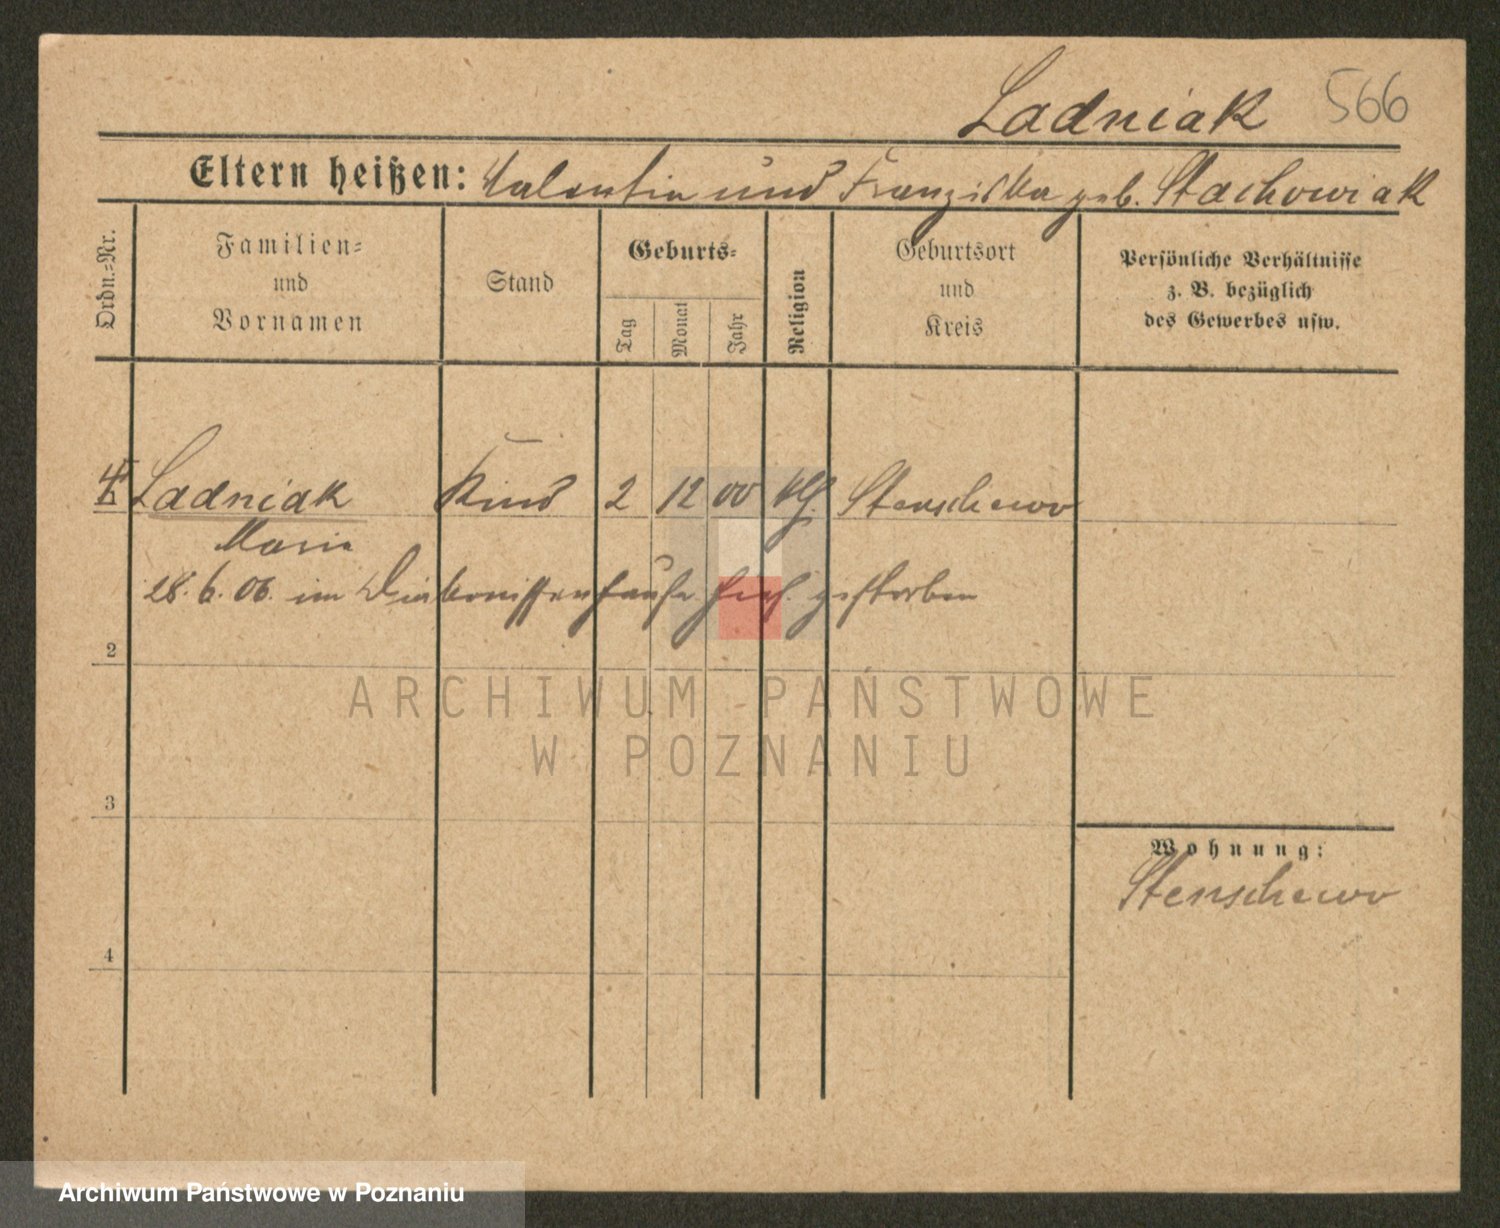 Ladniak 566
Eltern heißen: Valentin und Franziska geb. Stachowiak
Ordn.-Nr.
Familien-
und
Vornamen
Stand
Geburts-
Tag
Monat
Jahr
Religion
Geburtsort
und
Kreis
Persönliche Verhältnisse
z. B. bezüglich
des Gewerbes usw.
Ladniak Kind 2 12 00 Stenschewo
Maria
28.6.06. im Diakonissenhause gestorben
2
ARCHIWUM PAŃSTWOWE
W POZNANIU
3
Wohnung:
Stenschewo
4
Archiwum Państwowe w Poznaniu